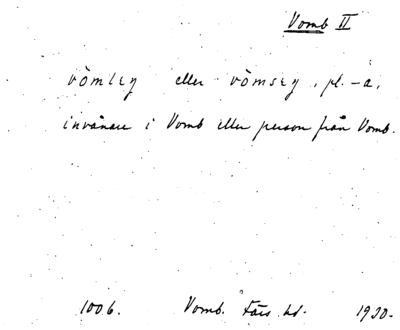 Vomb II
vömlıŋ eller vömsıŋ, pl. -a,
invånare i Vomb eller person från Vomb.
1006. Vomb. Färs hd. 1930.